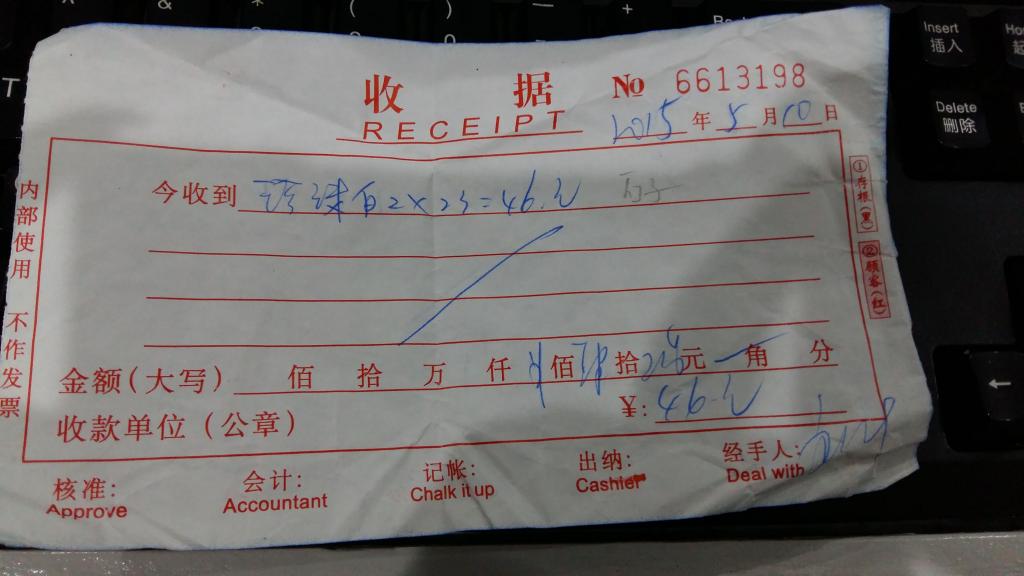 收 据 № 6613198
RECEIPT 2015年5月10日
今收到 珍珠白2×23=46.元
金额(大写) 佰 拾 万 仟 佰肆拾 元 角 分
收款单位(公章) ¥: 46.元
核准: 会计: 记帐: 出纳: 经手人:
Approve Accountant Chalk it up Cashier Deal with
内部使用 不作发票
①存根(黑)
②顾客(红)
Insert
插入
Delete
删除